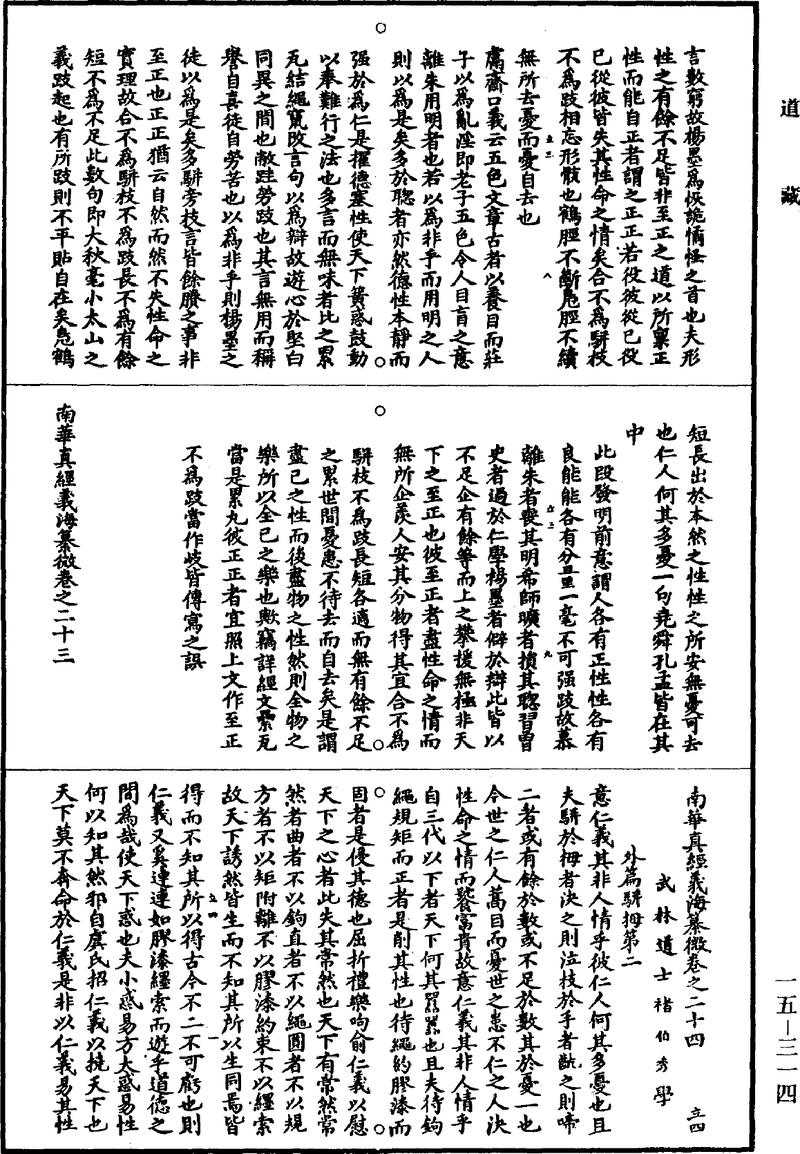 道藏
言數窮故楊墨為恢詭憰怪之首也夫形
性之有餘不足皆非至正之道以所稟正
性而能自正者謂之正正若役彼從已役
已從彼皆失其性命之情矣合不為駢枝
不為跂相忘形骸也鶴脛不斷鳧脛不續
無所去憂而憂自去也
鬳齋口義云五色文章古者以養目而莊
子以為亂淫即老子五色令人目盲之意
離朱用明者也若以為非乎而用明之人
則以為是矣多於聰者亦然德性本靜而
强於為仁是擢德塞性使天下簧惑鼓動
以奉難行之法也多言而無味者比之累
瓦結繩竄改言句以為辯故遊心於堅白
同異之間也敝跬勞跂也其言無用而稱
譽自喜徒自勞苦也以為非乎則楊墨之
徒以為是矣多駢旁枝言皆餘賸之事非
至正也正正猶云自然而然不失性命之
實理故合不為駢枝不為跂長不為有餘
短不為不足此數句即大秋毫小太山之
義跂起也有所跂則不平貼自在矣鳧鶴
短長出於本然之性性之所安無憂可去
也仁人何其多憂一句堯舜孔孟皆在其
中
此段發明前意謂人各有正性性各有
良能能各有分量一毫不可强跂故慕
離朱者喪其明希師曠者損其聰習曾
史者過於仁學楊墨者僻於辯此皆以
不足企有餘等而上之攀援無極非天
下之至正也彼至正者盡性命之情而
無所企羨人安其分物得其宜合不為
駢枝不為跂長短各適而無有餘不足
之累世間憂患不待去而自去矣是謂
盡已之性而後盡物之性然則全物之
樂所以全已之樂也歟竊詳經文纍瓦
當是累丸彼正正者宜照上文作至正
不為跂當作岐皆傳寫之誤
南華真經義海纂微卷之二十三
南華真經義海纂微卷之二十四 立四
武林道士褚伯秀學
外篇駢拇第二
意仁義其非人情乎彼仁人何其多憂也且
夫駢於拇者決之則泣枝於手者齕之則啼
二者或有餘於數或不足於數其於憂一也
今世之仁人蒿目而憂世之患不仁之人決
性命之情而饕富貴故意仁義其非人情乎
自三代以下者天下何其囂囂也且夫待鉤
繩規矩而正者是削其性也待繩約膠漆而
固者是侵其德也屈折禮樂呴俞仁義以慰
天下之心者此失其常然也天下有常然常
然者曲者不以鉤直者不以繩圓者不以規
方者不以矩附離不以膠漆約束不以纆索
故天下誘然皆生而不知其所以生同焉皆
得而不知其所以得古今不二不可虧也則
仁義又奚連連如膠漆纆索而遊乎道德之
間為哉使天下惑也夫小惑易方大惑易性
何以知其然邪自虞氏招仁義以撓天下也
天下莫不奔命於仁義是非以仁義易其性
一五—三一四